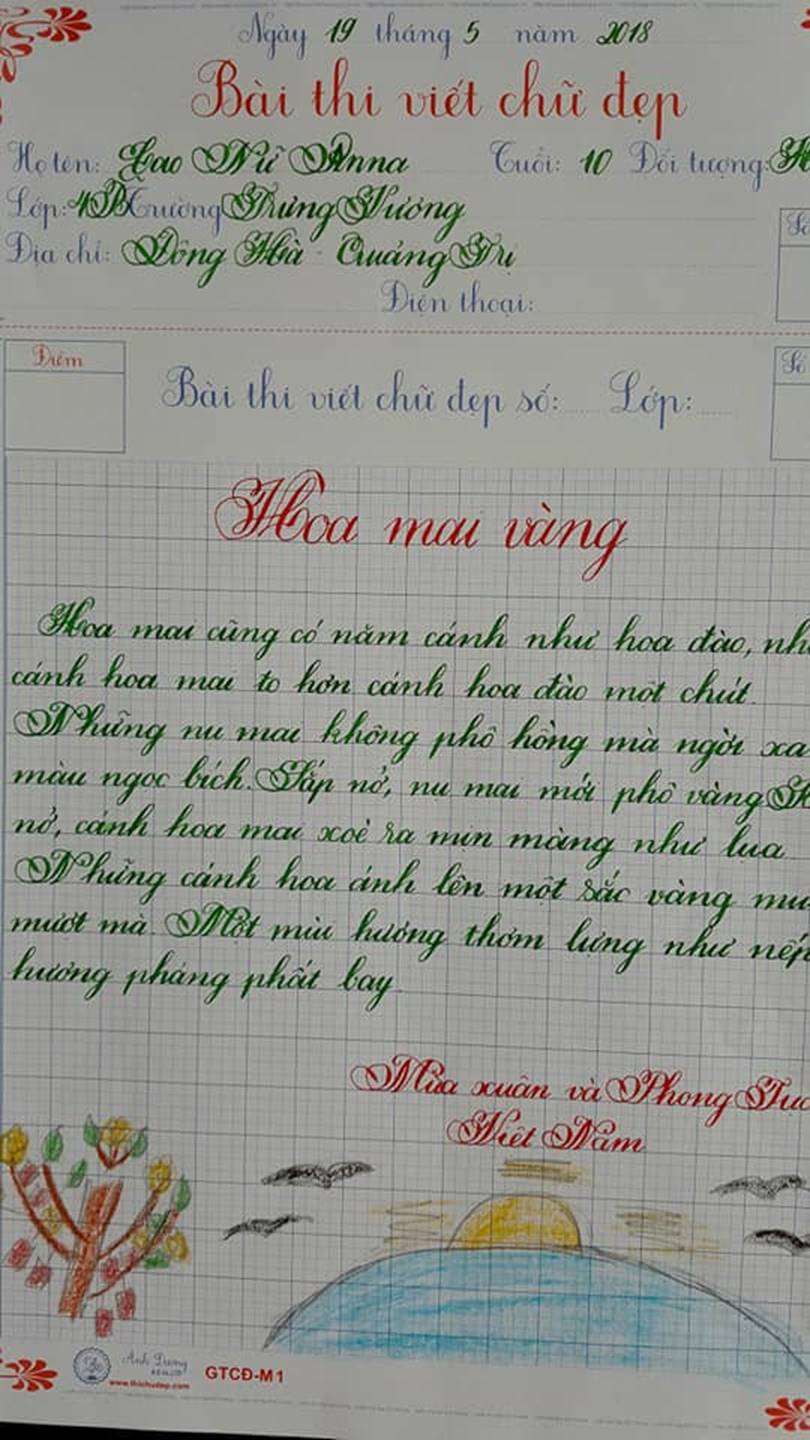 Ngày 19 tháng 5 năm 2018
Bài thi viết chữ đẹp
Họ tên: Cao Nữ Anna Tuổi: 10 Đối tượng:
Lớp: 4B Trường Trưng Vương
Địa chỉ: Đông Hà - Quảng Trị
Điện thoại:
Điểm
Bài thi viết chữ đẹp số: Lớp:
Hoa mai vàng
Hoa mai cũng có năm cánh như hoa đào,
cánh hoa mai to hơn cánh hoa đào một chút.
Những nụ mai không phô hồng mà ngời
màu ngọc bích. Sắp nở, nụ mai mới phô vàng
nở, cánh hoa mai xoè ra mịn màng như lụa
Những cánh hoa ánh lên một sắc vàng
mướt mà. Một mùi hương thơm lựng như nếp
hương phảng phất bay
Mùa xuân và Phong Tục
Việt Nam
Ánh Dương
www.thichudep.com
GTCĐ-M1